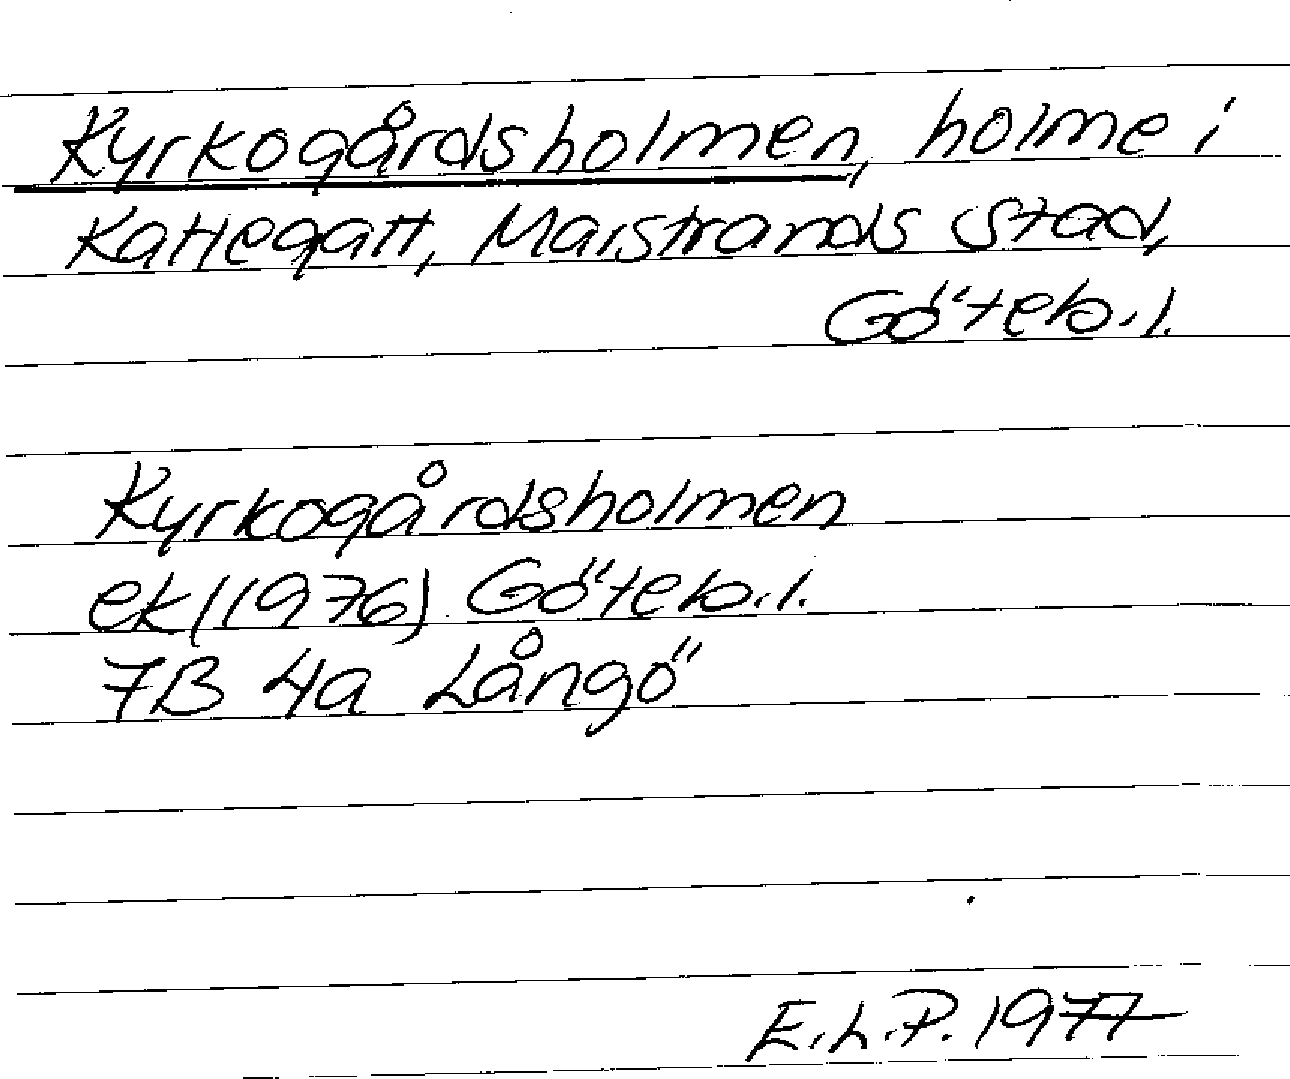 Kyrkogårdsholmen, holme i
Kattegatt, Marstrands stad,
Göteb.l.
Kyrkogårdsholmen
ek (1976) Göteb.l.
7B 4a Långö
E.L.P. 1977